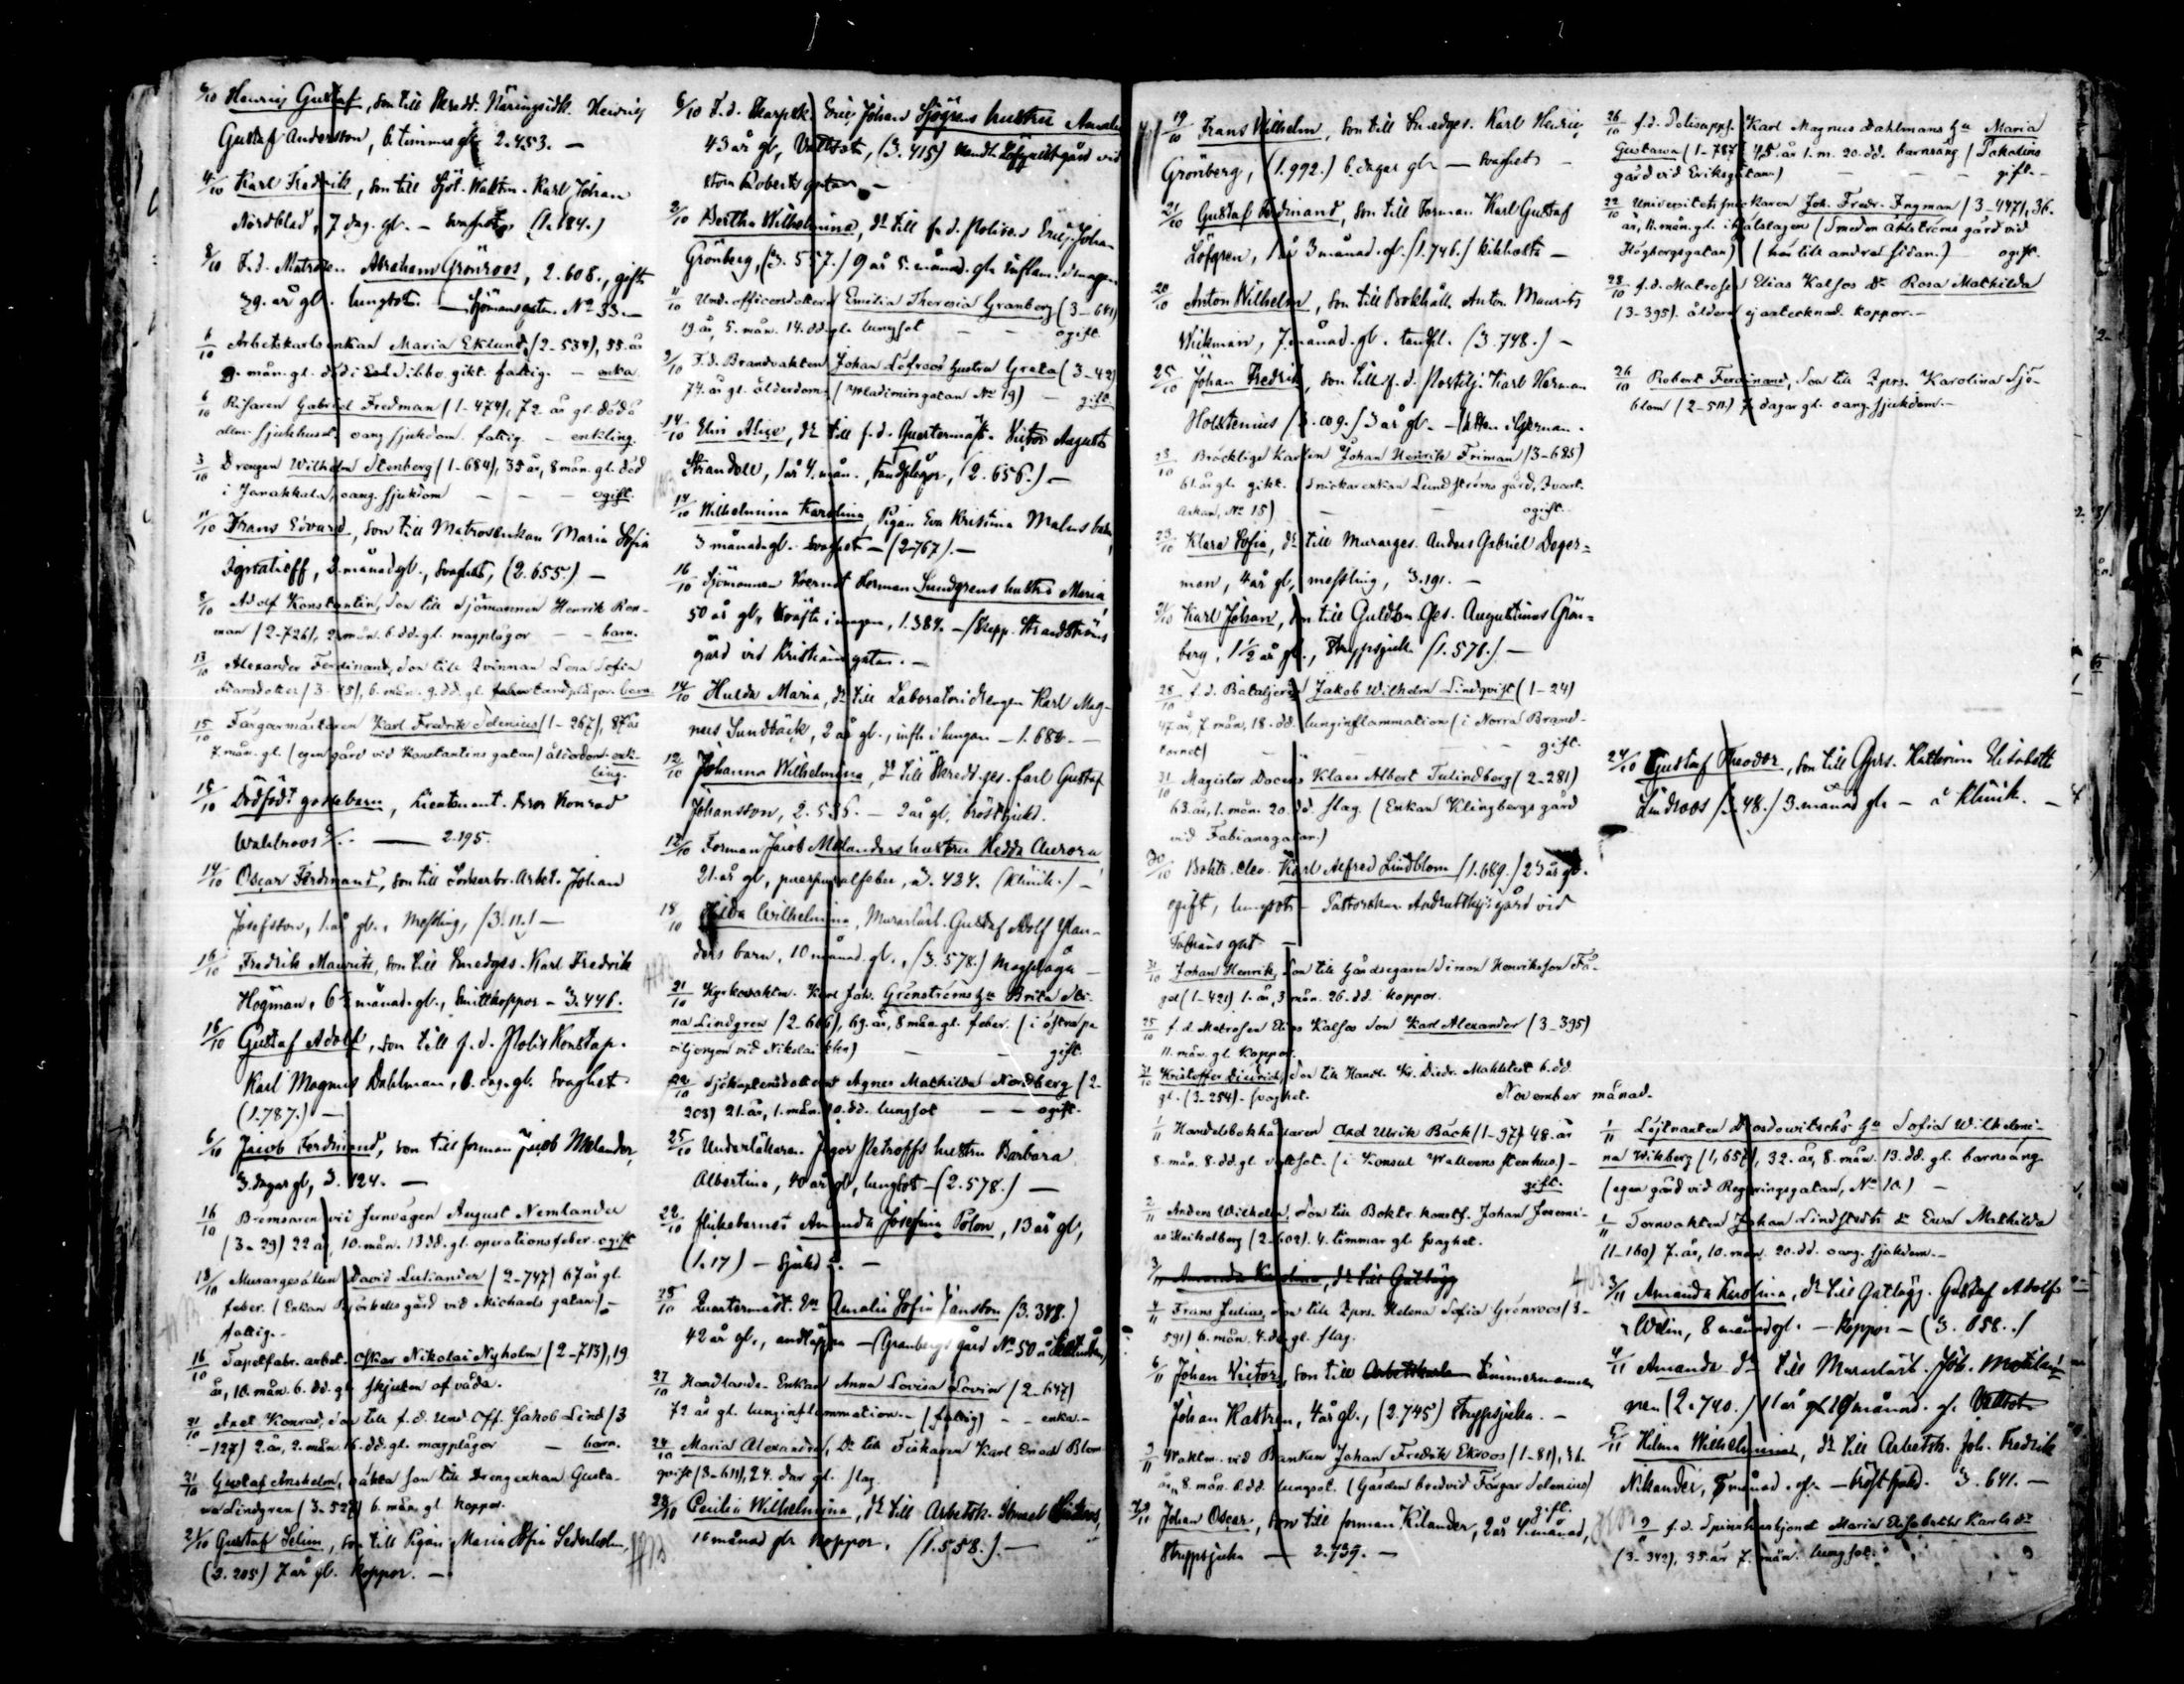 6/10 Henrik Gustaf, son till Skredd. Näringsidk. Heinrik
Gustaf Andersson, 6 timmar gl. 2.453. —
4/10 Karl Fredrik, son till Sjöt. Vaktm. Karl Johan
Nordblad, 7 dag. gl. — svaghet, (1.684.)
8/10 F.d. Matrosen Abraham Grönroos, 2.608., gift
39. år gl. lungsot. — Sjömansgatan. No 33. —
6/10 Arbetskarlsenkan Maria Eklund, (2–534), 55. år
9. mån. gl. död i Sibbo. gikt. fattig. — enka
6/10 Ritaren Gabriel Fredman (1–474), 72. år gl. död å
allm. sjukhuset, oang. sjukdom. fattig. — enkling.
3/10 Drengen Wilhelm Stenberg (1–684), 35 år, 8 mån. gl. död
i Janakkala, oang. sjukdom — — — ogift.
11/10 Frans Edvard, son till Matrosenkan Maria Sofia
Ignatieff, 2. månad gl., svaghet, (2.655.) —
8/10 Adolf Konstantin, son till Sjömannen Henrik Ron-
man (2–726), 2. mån. 6. dd. gl. magplågor — — barn.
13/10 Alexander Ferdinand, son till Qvinnan Lena Sofia
Adamsdotter (3–45), 6. mån. 9. dd. gl. tandplågor. barn
15/10 Färgarmästaren Karl Fredrik Solenius (1–267), 87 år
7. mån. gl. (egen gård vid Konstantins gatan) ålderdom. enk-
ling.
15/10 Dödfödt gossebarn, Lieutenant. Bror Konrad
Wahlroos — 2.195.
14/10 Oscar Ferdinand, son till Sockerbr. Arbet. Johan
Josefsson, 1. år gl., Messling, (3.11.) —
16/10 Fredrik Maurits, son till Smedges. Karl Fredrik
Högman, 6½ månad. gl., Smittkoppor — 3.446.
16/10 Gustaf Adolf, son till f.d. Polis Konstap.
Karl Magnus Dahlman, 8. dag. gl. Svaghet
(1.787.) —
6/10 Jacob Ferdinand, son till forman Jacob Melander,
3. dagar gl, 3. 424. —
16/10 Bromsaren vid Jernvägen August Nemlander
(3–29) 22 år, 10. mån. 13 dd. gl. operationsfeber. ogift
18/10 Murargesällen David Luliander (2–747) 67 år gl.
feber. (Enkan Björkells gård vid Michaels gatan) —
fattig. —
16/10 Tapetfabr. arbet. Oskar Nikolai Nyholm (2–713), 19
år, 10. mån. 6. dd. gl. skjuten af våda.
21/10 Axel Konrad, son till f.d. Und. Off. Jakob Lind (3
–127) 2. år, 2. mån. 16. dd. gl. magplågor — barn.
21/10 Gustaf Anshelm, oäkta son till Drengenkan Gusta-
va Lindgren (3–527) 6. mån. gl. koppor.
21/10 Gustaf Selim, son till Pigan Maria Sofia Sederholm,
(3.205) 7 år gl. koppor. —
6/10 F.d. Skarpsk. Eric Johan Sjögrens hustru Amalia
43 år gl, Vattsot, (3.415) Handl. Löfqvists gård vid
stora Roberts gatan —
2/10 Bertha Wilhelmina, dr till f.d. Polisen. Eric Johan
Grönberg, (3.557.) 9 år 5. månad. gl. inflam. i magen
11/10 Und. officersdottern Emilia Theresia Granberg (3–641)
19. år, 5. mån. 14. dd. gl. lungsot — — ogift.
9/10 F.d. Brandvakten Johan Löfroos hustru Greta (3–42)
74. år gl. ålderdom. (Wladimirsgatan No 19) — gift.
14/10 Elin Alice, dr till f.d. Quartermäst. Victor August
Strandell, 1 år 4. mån., tandplågor, (2.656.) —
14/10 Wilhelmina Karolina, Pigan Eva Kristina Malms barn,
3 månad. gl. svaghet — (2.767). —
16/10 Sjömannen Berndt Herman Sundgrens hustru Maria,
50 år gl, kräfta i magen, 1.384. — (Skepp. Strandströms
gård vid Kristians gatan. —
14/10 Hulda Maria, dr till Laboratoridrengen Karl Mag-
nus Sundbäck, 2 år gl., infl. i lungan — 1.682. —
12/10 Johanna Wilhelmina, dr till Skredd. ges. Carl Gustaf
Johansson, 2.535. — 2 år gl, bröstsjukd.
12/10 Forman Jacob Melanders hustru Hedda Aurora
21. år gl, puerperalfeber, 3. 424. (Klinik.) —
18/10 Hilda Wilhelmina, Murarlärl. Gustaf Adolf Ylan-
ders barn, 10 månad. gl., (3.578.) Magplågor —
21/10 Kyrkovaktm. Karl Joh. Grénströms hu Brita Sti-
na Lindgren (2.666), 69. år, 8 mån. gl. feber. (i östra pa-
viljongen vid Nikolai kbn) — gift.
22/10 Sjökaptensdottern Agnes Mathilda Nordberg (2–
203) 21. år, 1. mån. 10. dd. lungsot — — ogift.
25/10 Underläkaren Jegor Petroffs hustru Barbara
Albertina, 40 år gl, lungsot — (2.578.) —
22/10 flickebarnet Amanda Josefina Polon, 13 år gl,
(1.17) — Sjukd. —
25/10 Quartermäst. hu Amalia Sofia Jansson (3.388.)
42 år gl., andtäppa — (Granbergs gård No 50 å Skatudden)
27/10 Handlande Enkan Anna Lovisa Lovin (2–647)
72 år gl. lunginflammation. — (fattig) — — enka. —
24/10 Maria Alexandra, Dr till Fiskaren Karl Enoch Blom-
qvist (3–611), 24. dar gl. slag.
29/10 Cecilia Wilhelmina, dr till Arbetsk. Ismael Lindroos,
16 månad gl. koppor. (1.558.) —
19/10 Frans Wilhelm, son till Smedges. Karl Henric
Grönberg, (1.992.) 6. dagar gl. — svaghet —
21/10 Gustaf Ferdinand, son till Forman Karl Gustaf
Löfgren, 1 år 3 månad. gl. (1.746.) kikhosta —
20/10 Anton Wilhelm, son till Bokhåll. Anton Maurits
Wickman, 7. månad. gl. tandpl. (3.748.) —
25/10 Johan Fredrik, son till f.d. Postilj. Karl Herman
Holstenius / 3 år gl. —
23/10 Bräcklige Karlen Johan Henrik Friman (3–685)
61. år gl. gikt. (Snickarenkan Lundströms gård,
No 15) — — ogift.
23/10 Klara Sofia, dr till Murarges. Anders Gabriel Deger-
man, 4 år gl, messling, 3.191. —
21/10 Karl Johan, son till Guldsm. Ges. Augustinus Grön-
berg, 1½ år gl., Strypsjuk. (1.576.) —
28/10 f.d. Bataljons Jakob Wilhelm Lindqvist (1–24)
47 år, 7. mån, 18. dd. lunginflammation (i Norra Brand-
tornet) — — gift.
31/10 Magister Docens Klaes Albert Tulindberg (2–281)
63. år, 1. mån. 20. dd. slag. (Enkan Klingbergs gård
vid Fabiansgatan.)
30/10 Boktr. elev. Karl Alfred Lindblom (1.689.) 23 år gl.
ogift, lungsot — Pastorskan gård vid
Fabians gat —
31/10 Johan Henrik, son till Gårdsegaren Simon Henriksson Få-
gel (1–421) 1. år, 3 mån. 26. dd. koppor.
25/10 f.d. Matrosen Elias Kalsos son Karl Alexander (3–395)
11. mån. gl. koppor.
31/10 Kristoffer Diedrich, son till Handl. Kr. Diedr. Mahlstedt 6. dd.
gl. (3–254). svaghet.
November månad.
1/11 Handelsbokhållaren Axel Ulrik Bäck (1–97) 48. år
8. mån. 8. dd. gl. vattsot. (i Konsul Walleens stenhus) —
gift.
2/11 Anders Wilhelm, son till Boktr. konstf. Johan Jeremi-
as Heikelberg (2–602). 4. timmar gl. svaghet.
3/11 Amanda Karolina, dr till Gatlägg
4/11 Frans Julius, son till Qprs. Helena Sofia Grönroos (3–
591) 6. mån. 4. d. gl. slag.
6/11 Johan Victor, son till Arbetskarlen timmermannen
Johan Hattren, 4 år gl., (2.745) Strypsjuka. —
9/11 Waktm. vid Banken Johan Fredrik Ekroos (1–81), 36.
år, 8. mån. 6. dd. lungsot. (Gården bredvid Färgar Solenius)
gift.
7/11 Johan Oscar, son till forman Kilander, 2 år 4. månad,
Strypsjuka — 2.739. —
26/10 f.d. Polisupps. Karl Magnus Dahlmans hu Maria
Gustava (1–787) 45 år 1. m. 20. dd. barnsäng (Pakalins
gård vid Eriksgatan.) — — gift. —
22/10 Universitetssnickaren Joh. Fredr. Ingman (3–447), 36.
år, 11. mån. gl. ihjälslagen (Smeden Åhlströms gård vid
Högbergsgatan) (hör till andra sidan.) ogift.
28/10 f.d. Matrosen Elias Kalsos dr Rosa Mathilda
(3–395). åldern ej antecknad. koppor. —
26/10 Robert Ferdinand, son till Qprs. Karolina Sjö-
blom (2–511) 7. dagar gl. oang. sjukdom. —
24/10 Gustaf Theodor, son till Qprs. Katherina Elisabeth
Lindroos (3.48.) 3. månad gl. — å Klinik. —
1/11 Löjtnanten hu Sofia Wilhelmi-
na Wikberg (1,657), 32. år, 8. mån. 13. dd. gl. barnsäng
(egen gård vid Regeringsgatan, No 10.) —
1/11 Tornvakten Johan Lindstedts dr Ewa Mathilda
(1–160) 7. år, 10. mån. 20. dd. oang. sjukdom. —
3/11 Amanda Karolina, dr till Gatlägg. Gustaf Adolf
Welin, 8 månad gl. — koppor — (3. 658.)
4/11 Amanda dr till Murarlärl. Joh. Matilai-
nen (2.740.) 1 år gl. 10 månad. gl. Vattsot
5/11 Hilma Wilhelmina, dr till Arbetsk. Joh. Fredrik
Nikander, 8 månad. gl. — bröstsjukd. 3. 641. —
9/11 f.d. Spinnhushjonet Maria Elisabeth Karlsdr
(3–342), 35. år 7. mån. lungsot.